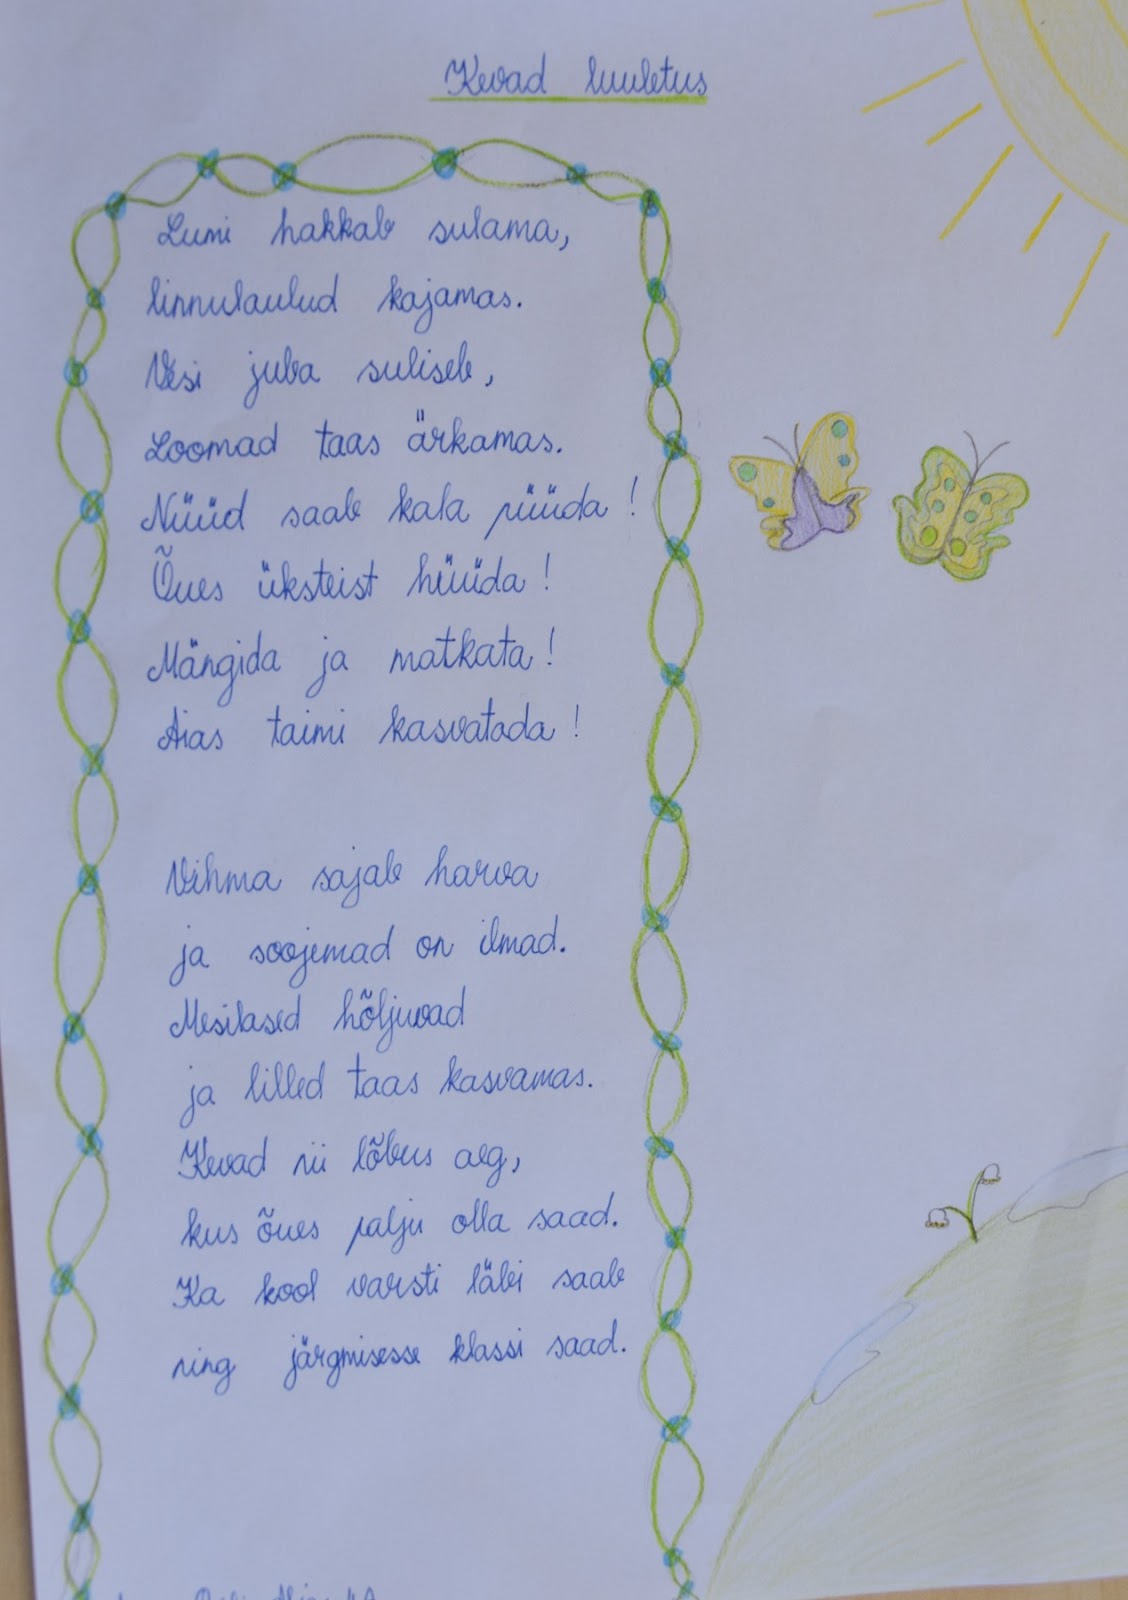 Kevad luuletus
Lumi hakkab sulama,
linnulaulud kajamas.
Vesi juba suliseb,
Loomad taas ärkamas.
Nüüd saab kala püüda!
Õues üksteist hüüda!
Mängida ja matkata!
Aias taimi kasvatada!
Vihma sajab harva
ja soojemad on ilmad.
Mesilased hõljuvad
ja lilled taas kasvamas.
Kevad nii lõbus aeg,
kus õues palju olla saad.
Ka kool varsti läbi saab
ning järgmisesse klassi saad.